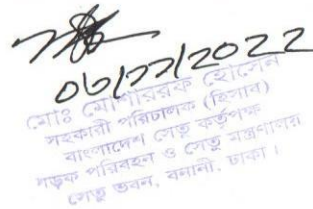 06/12/2022
মোঃ মোশাররফ হোসেন
সহকারী পরিচালক (হিসাব)
বাংলাদেশ সেতু কর্তৃপক্ষ
সড়ক পরিবহন ও সেতু মন্ত্রণালয়
সেতু ভবন, বনানী, ঢাকা।